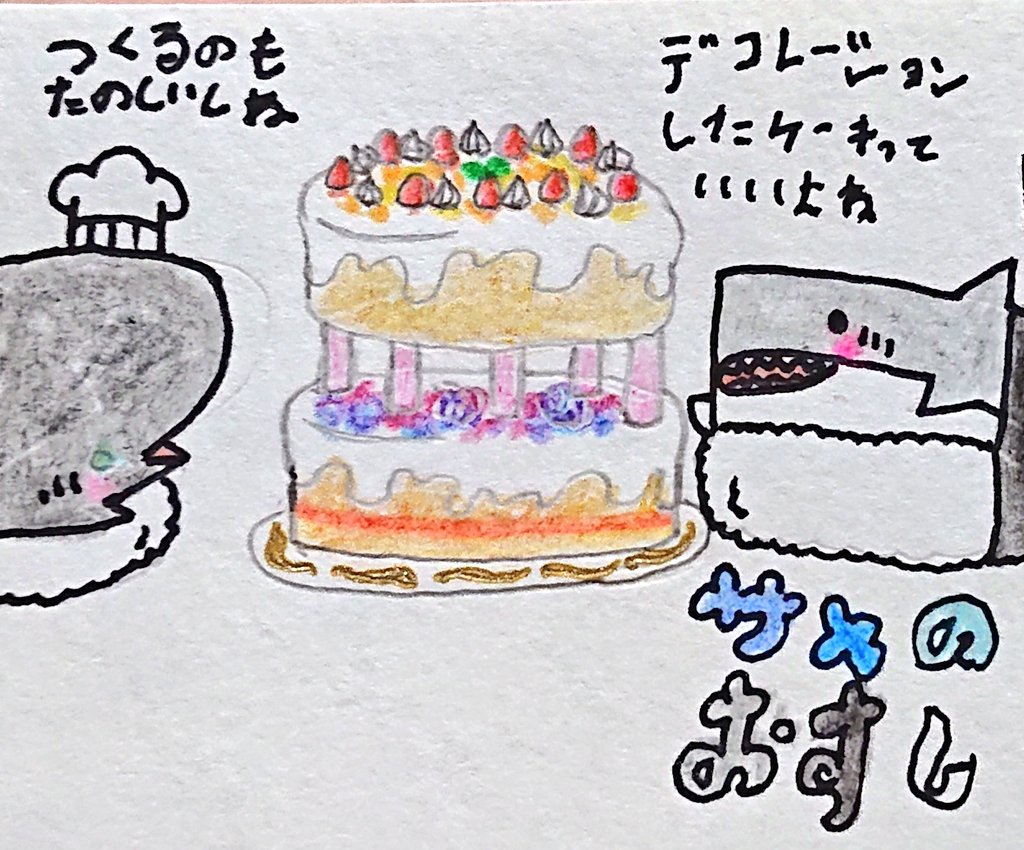 つくるのも
たのしいしね
デコレーション
したケーキって
いいよね
サメの
おすし